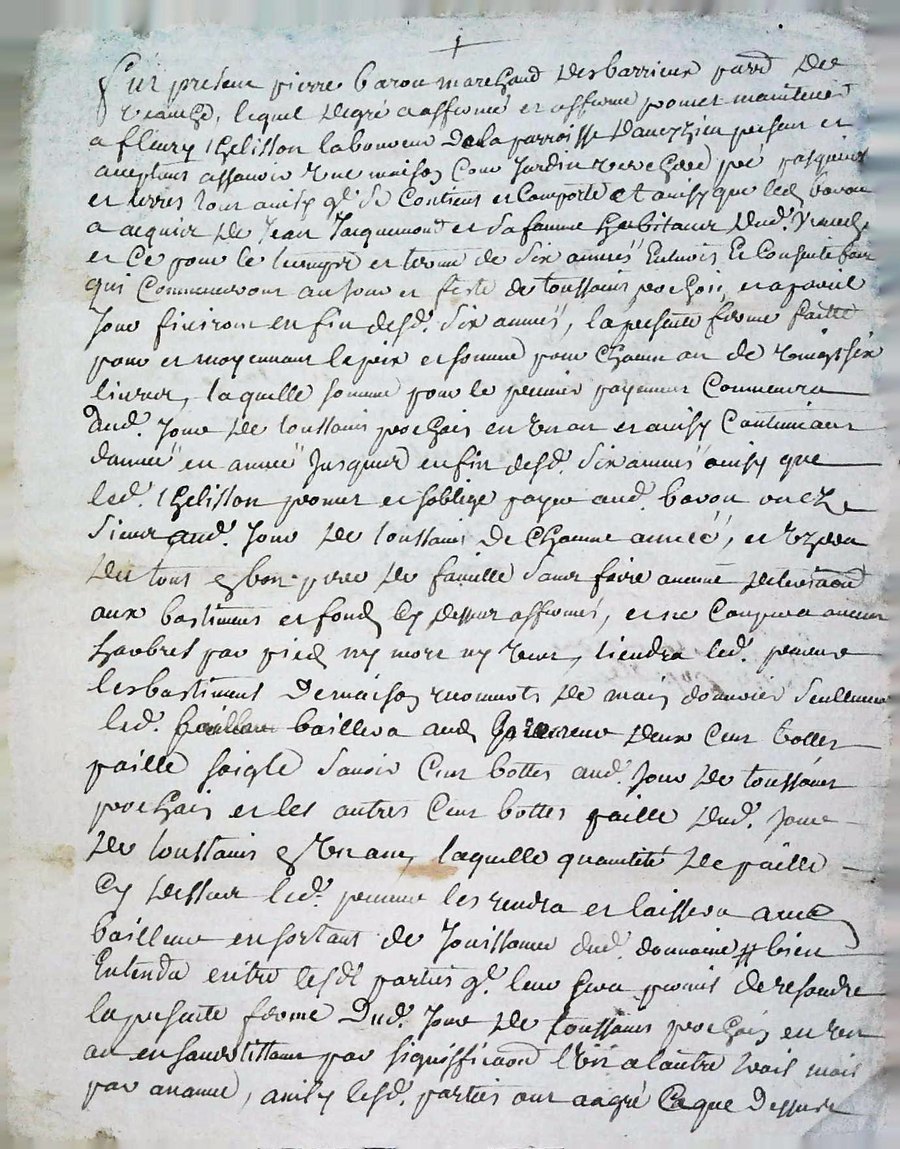 Fut present pierre baron marchand des barrieux parr.d de
lequel de gré a affermé et afferme promet maintenir
a fleury thelisson laboureur de la parroisse present et
acceptant assavoir une maison cour Jardin verchere pré pasquier
et terres tout ainsy q.l se Contient et Comporte et ainsy que led. baron
a acquis de Jean Jacquemond et sa famme habitants dud.
et Ce pour le temps et terme de six années Entiers Et Consecutives
qui Commenceront au Jour et feste de toussains prochain, et a pareil
Jour finiront en fin desd. six années, la presente ferme faitte
pour et moyennant le prix et somme pour Chacun an de vingt six
livres, laquelle somme pour le premier payement Commencera
aud. Jour de toussains prochain en un an et ainsy Continuant
dannée en année Jusques en fin desd. six années ainsy que
led. thelisson promet et soblige payer aud. baron
aud. Jour de toussains de Chacune année, et uzera
du tout en bon pere de famille sans faire aucune deterioraon
aux bastiments et fond Cy dessus affermés, et ne Coupera aucun
harbres par pied ny mort ny vert, tiendra led. preneur
les bastiments de maison de main douvrier seullement
led. baillera aud. preneur deux Cent bottes
paille soigle savoir Cent bottes aud. Jour de toussains
prochain et les autres Cent bottes paille dud. Jour
de toussains en un an, laquelle quantité de paille
Cy dessus led. preneur les rendra et laissera aud.
bailleur en sortant de Jouissance dud. domaine bien
Entendu entre lesd. parties q.l leur sera permis de resoudre
la presente ferme dud. Jour de toussains prochain en un
an en savertissant par signiffication l'un a lautre trois mois
par avance, ainsy lesd. parties ont aagré Ce que dessus